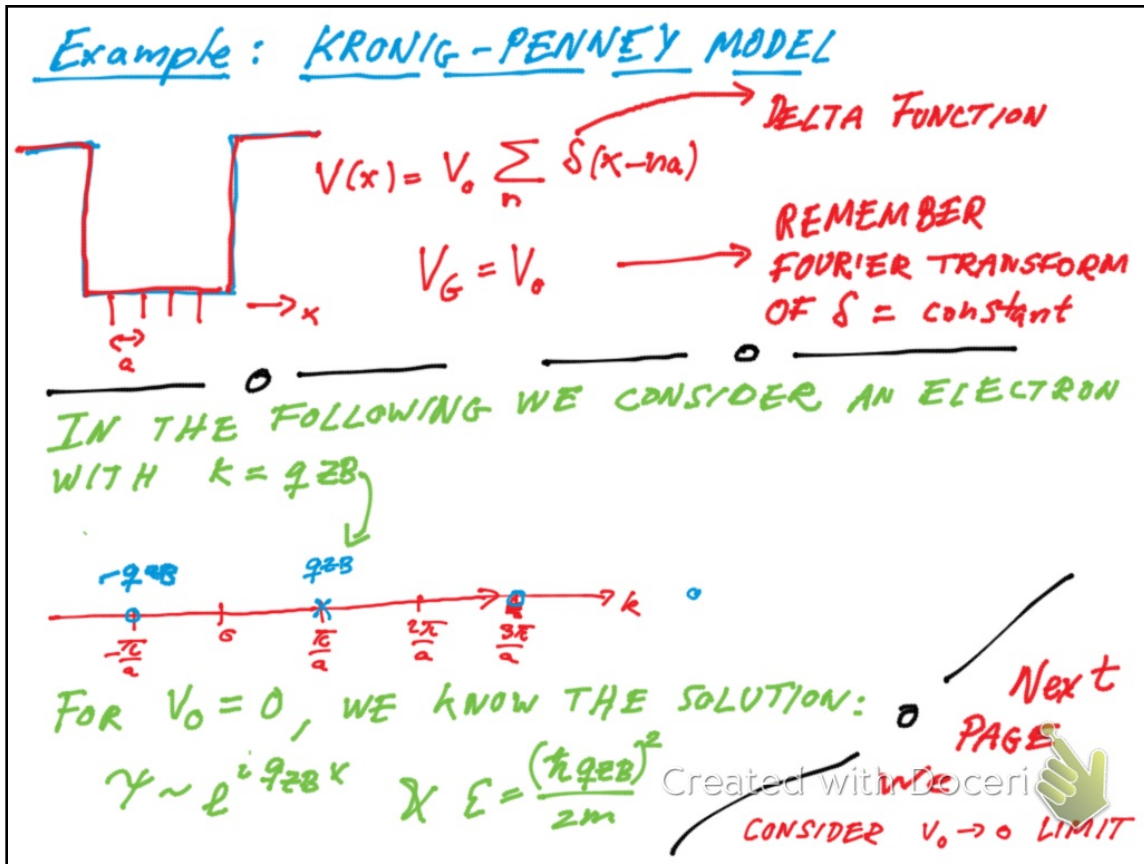 Example: KRONIG-PENNEY MODEL
DELTA FUNCTION
V(x) = V₀ ∑ₙ δ(x-na)
REMEMBER
V_G = V₀ → FOURIER TRANSFORM
OF δ = constant
x
a
IN THE FOLLOWING WE CONSIDER AN ELECTRON
WITH k = qZB
-qZB qZB
-π/a 0 π/a 2π/a 3π/a k
FOR V₀ = 0, WE KNOW THE SOLUTION:
ψ ~ e^{i qZB x} & ε = (ħqZB)²/2m
Next
PAGE
we
CONSIDER V₀ → 0 LIMIT
Created with Doceri